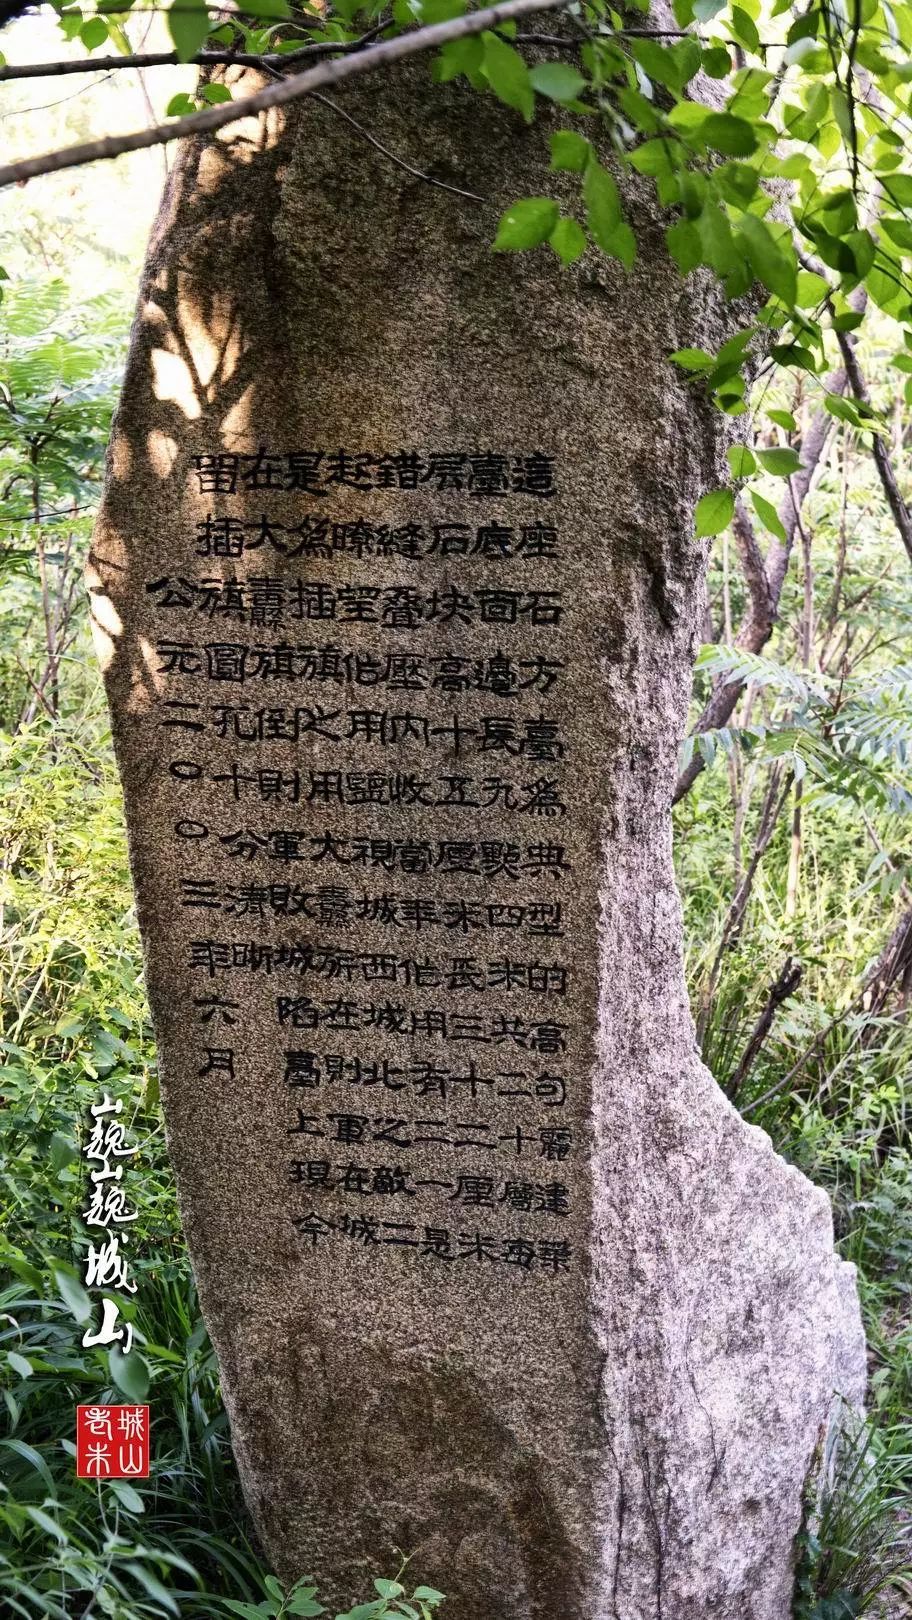 這座石方臺為典型的高句麗建築
臺底面邊長九點四米共二十層每
层石块高十五厘米長三十二厘米
錯縫叠壓内收當年作用有二一是
起瞭望作用監視城西城北之敵二
是為插旗之用大纛所在則軍在城
在大纛旗倒則軍敗城陷臺上現今
留插旗圓孔十分清晰
公元二〇〇三年六月
巍巍城山
城山老朱